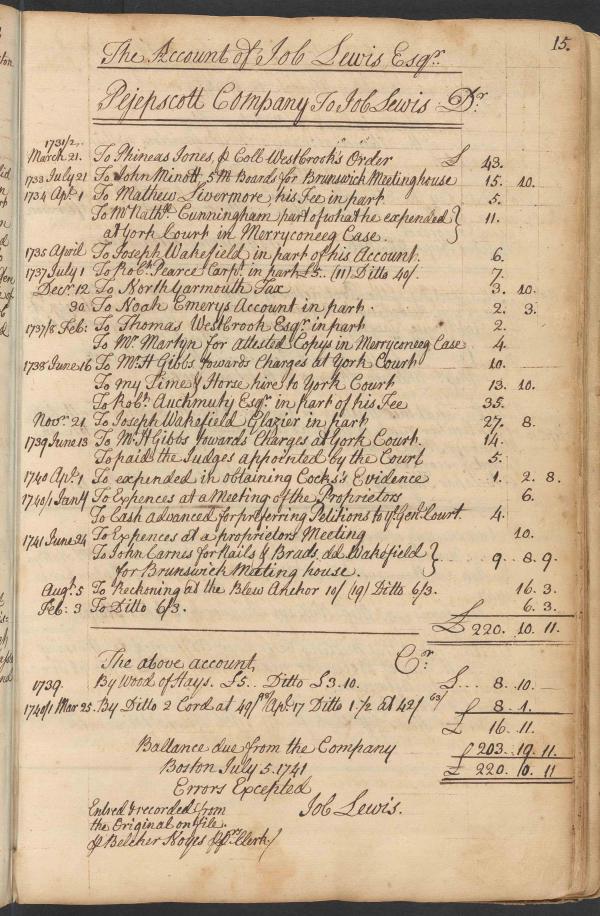 15.
The Account of Job Lewis Esqr.
Pejepscott Company To Job Lewis Dr.
1731/2
March 21. To Phineas Jones, ⅌ Coll Westbrook's Order £ 43.
1732 July 21 To John Minott, 5 M Boards for Brunswick Meetinghouse 15. 10.
1734 Apl. 1 To Mathew Livermore his Fee in part 5.
To Mr Nathll Cunningham part of what he expended } 11.
at York Court in Merryconeeg Case.
1735 April To Joseph Wakefield in part of his Account. 6.
1737 July 1 To Robt. Pearce Carpr. in part £5. (11) Ditto 40/. 7.
Decr. 12 To North Yarmouth Tax 3. 10.
30 To Noah Emerys Account in part. 2. 3.
1737/8 Feb: To Thomas Westbrook Esqr. in part 2.
To Mr Martyn for attested Copys in Merryconeeg Case 4.
1738 June 16 To Mr. H Gibbs towards Charges at York Court 10.
To my Time & Horse hire to York Court 13. 10.
To Robt. Auchmuty Esqr. in part of his Fee 35.
Novr. 21 To Joseph Wakefield Glazier in part 27. 8.
1739 June 13 To Mr. H Gibbs towards Charges at York Court. 14.
To paid the Judges appointed by the Court 5.
1740 Apl. 1 To expended in obtaining Cocks's Evidence 1. 2. 8.
1740/1 Jan 4 To Expences at a Meeting of the Proprietors 6.
To Cash advanced for preferring Petitions to ye Genl. Court. 4.
1741 June 24 To Expences at a proprietors Meeting 10.
To John Carnes for Nails & Brads, dd Wakefield } 9. 8. 9.
for Brunswick Meating house.
Augt. 5 To Reckoning at the Blew Anchor 10/ (19) Ditto 6/3. 16. 3.
Feb: 3 To Ditto 6/3. 6. 3.
£ 220. 10. 11.
The above account Cr.
1739. By Wood of Hays. £5.. Ditto £3.10. £ 8. 10.
1740/1 Mar 25. By Ditto 2 Cord at 49/ Apl. 17 Ditto 1 1/2 at 42/ 63/ £ 8. 1.
£ 16. 11.
Ballance due from the Company £ 203. 19. 11.
Boston July 5. 1741 £ 220. 10. 11
Errors Excepted
Job Lewis.
Entred & recorded from
the Original on file.
⅌ Belcher Noyes Clerk/